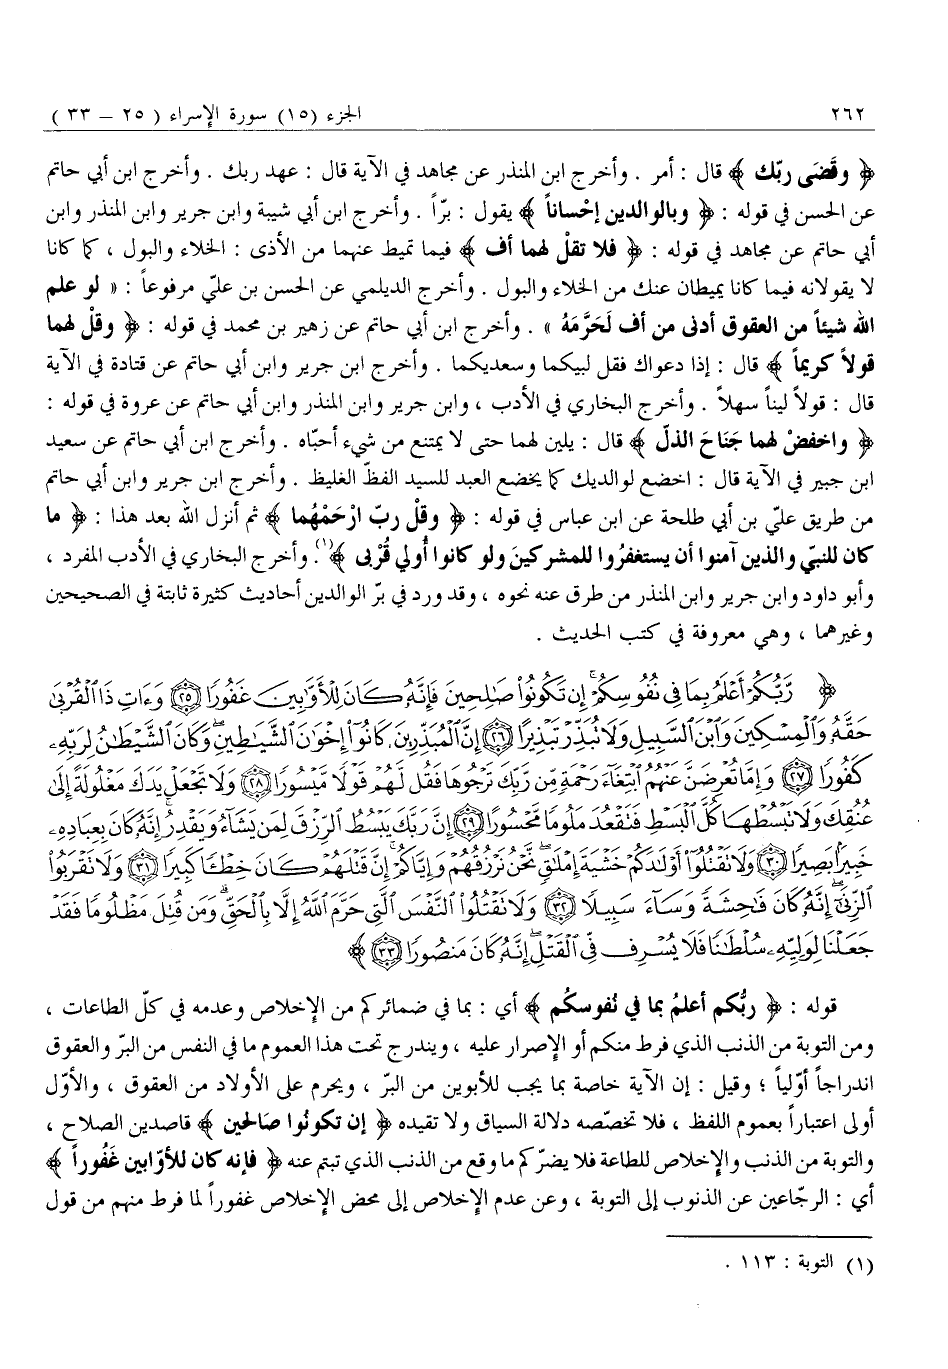 ٢٦٢ الجزء (١٥) سورة الإسراء ( ٢٥ – ٣٣ )
﴿ وقَضَى ربّك ﴾ قال : أمر . وأخرج ابن المنذر عن مجاهد في الآية قال : عهد ربك . وأخرج ابن أبي حاتم
عن الحسن في قوله : ﴿ وبالوالدين إحْساناً ﴾ يقول : برّاً . وأخرج ابن أبي شيبة وابن جرير وابن المنذر وابن
أبي حاتم عن مجاهد في قوله : ﴿ فلا تقلْ لهما أف ﴾ فيما تميط عنهما من الأذى : الخلاء والبول ، كما كانا
لا يقولانه فيما كانا يميطان عنك من الخلاء والبول . وأخرج الديلمي عن الحسن بن عليّ مرفوعاً : « لو علم
الله شيئاً من العقوق أدنى من أف لَحَرَّمَهُ » . وأخرج ابن أبي حاتم عن زهير بن محمد في قوله : ﴿ وقلْ لهما
قولاً كريماً ﴾ قال : إذا دعواك فقل لبيكما وسعديكما . وأخرج ابن جرير وابن أبي حاتم عن قتادة في الآية
قال : قولاً ليناً سهلاً . وأخرج البخاري في الأدب ، وابن جرير وابن المنذر وابن أبي حاتم عن عروة في قوله :
﴿ واخفضْ لهما جَنَاحَ الذلّ ﴾ قال : يلين لهما حتى لا يمتنع من شيء أحبّاه . وأخرج ابن أبي حاتم عن سعيد
ابن جبير في الآية قال : اخضع لوالديك كما يخضع العبد للسيد الفظّ الغليظ . وأخرج ابن جرير وابن أبي حاتم
من طريق عليّ بن أبي طلحة عن ابن عباس في قوله : ﴿ وقلْ ربّ ارْحَمْهُما ﴾ ثم أنزل الله بعد هذا : ﴿ ما
كان للنبيّ والذين آمنوا أن يستغفرُوا للمشركينَ ولو كانوا أُولي قُرْبى ﴾(١). وأخرج البخاري في الأدب المفرد ،
وأبو داود وابن جرير وابن المنذر من طرق عنه نحوه ، وقد ورد في برّ الوالدين أحاديث كثيرة ثابتة في الصحيحين
وغيرهما ، وهي معروفة في كتب الحديث .
﴿ رَّبُّكُمْ أَعْلَمُ بِمَا فِي نُفُوسِكُمْ ۚ إِن تَكُونُوا۟ صَـٰلِحِينَ فَإِنَّهُۥ كَانَ لِلْأَوَّٰبِينَ غَفُورًا ﴿٢٥﴾ وَءَاتِ ذَا ٱلْقُرْبَىٰ
حَقَّهُۥ وَٱلْمِسْكِينَ وَٱبْنَ ٱلسَّبِيلِ وَلَا تُبَذِّرْ تَبْذِيرًا ﴿٢٦﴾ إِنَّ ٱلْمُبَذِّرِينَ كَانُوٓا۟ إِخْوَٰنَ ٱلشَّيَـٰطِينِ ۖ وَكَانَ ٱلشَّيْطَـٰنُ لِرَبِّهِۦ
كَفُورًا ﴿٢٧﴾ وَإِمَّا تُعْرِضَنَّ عَنْهُمُ ٱبْتِغَآءَ رَحْمَةٍ مِّن رَّبِّكَ تَرْجُوهَا فَقُل لَّهُمْ قَوْلًا مَّيْسُورًا ﴿٢٨﴾ وَلَا تَجْعَلْ يَدَكَ مَغْلُولَةً إِلَىٰ
عُنُقِكَ وَلَا تَبْسُطْهَا كُلَّ ٱلْبَسْطِ فَتَقْعُدَ مَلُومًا مَّحْسُورًا ﴿٢٩﴾ إِنَّ رَبَّكَ يَبْسُطُ ٱلرِّزْقَ لِمَن يَشَآءُ وَيَقْدِرُ ۚ إِنَّهُۥ كَانَ بِعِبَادِهِۦ
خَبِيرًۢا بَصِيرًا ﴿٣٠﴾ وَلَا تَقْتُلُوٓا۟ أَوْلَـٰدَكُمْ خَشْيَةَ إِمْلَـٰقٍ ۖ نَّحْنُ نَرْزُقُهُمْ وَإِيَّاكُمْ ۚ إِنَّ قَتْلَهُمْ كَانَ خِطْـًٔا كَبِيرًا ﴿٣١﴾ وَلَا تَقْرَبُوا۟
ٱلزِّنَىٰٓ ۖ إِنَّهُۥ كَانَ فَـٰحِشَةً وَسَآءَ سَبِيلًا ﴿٣٢﴾ وَلَا تَقْتُلُوا۟ ٱلنَّفْسَ ٱلَّتِى حَرَّمَ ٱللَّهُ إِلَّا بِٱلْحَقِّ ۗ وَمَن قُتِلَ مَظْلُومًا فَقَدْ
جَعَلْنَا لِوَلِيِّهِۦ سُلْطَـٰنًا فَلَا يُسْرِف فِّى ٱلْقَتْلِ ۖ إِنَّهُۥ كَانَ مَنصُورًا ﴿٣٣﴾ ﴾
قوله : ﴿ ربُّكم أعلمُ بما في نُفوسكُم ﴾ أي : بما في ضمائركم من الإخلاص وعدمه في كلّ الطاعات ،
ومن التوبة من الذنب الذي فرط منكم أو الإصرار عليه ، ويندرج تحت هذا العموم ما في النفس من البرّ والعقوق
اندراجاً أوّلياً ؛ وقيل : إن الآية خاصة بما يجب للأبوين من البرّ ، ويحرم على الأولاد من العقوق ، والأوّل
أولى اعتباراً بعموم اللفظ ، فلا تخصّصه دلالة السياق ولا تقيده ﴿ إن تكونُوا صَالحين ﴾ قاصدين الصلاح ،
والتوبة من الذنب والإخلاص للطاعة فلا يضرّكم ما وقع من الذنب الذي تبتم عنه ﴿ فإنه كان للأوّابين غَفُوراً ﴾
أي : الرجّاعين عن الذنوب إلى التوبة ، وعن عدم الإخلاص إلى محض الإخلاص غفوراً لما فرط منهم من قول
(١) التوبة : ١١٣ .